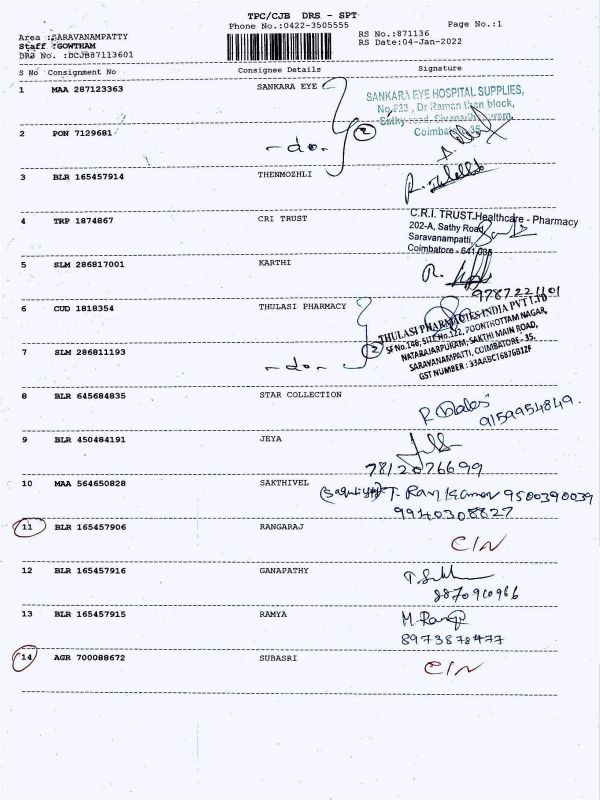 TPC/CJB DRS - SPT
Phone No.:0422-3505555
Page No.:1
Area :SARAVANAMPATTY
Staff :GOWTHAM
DRS No. :DCJB87113601
RS No.:871136
RS Date:04-Jan-2022
S No Consignment No Consignee Details Signature
1 MAA 287123363 SANKARA EYE
SANKARA EYE HOSPITAL SUPPLIES,
block,
Coimbatore 35
2 PON 7129681 -do. 2
3 BLR 165457914 THENMOZHLI
4 TRP 1874867 CRI TRUST
C.R.I. TRUST Healthcare - Pharmacy
202-A, Sathy Road
Saravanampatti,
Coimbatore - 641 035
5 SLM 286817001 KARTHI
9787221101
6 CUD 1818354 THULASI PHARMACY
THULASI PHARMACIES INDIA PVT LTD
SF No.146, SITE No.122, POONTHOTTAM NAGAR,
NATARAJARPURAM, SAKTHI MAIN ROAD,
SARAVANAMPATTI, COIMBATORE - 35.
GST NUMBER : 33AABCT6876B1ZF
7 SLM 286811193 -do. 2
8 BLR 645684835 STAR COLLECTION
9159954849.
9 BLR 450484191 JEYA
7812076699
10 MAA 564650828 SAKTHIVEL
9500390039
9940308827
11 BLR 165457906 RANGARAJ
C/N
12 BLR 165457916 GANAPATHY
8870910966
13 BLR 165457915 RAMYA
8973878477
14 AGR 700088672 SUBASRI
C/N